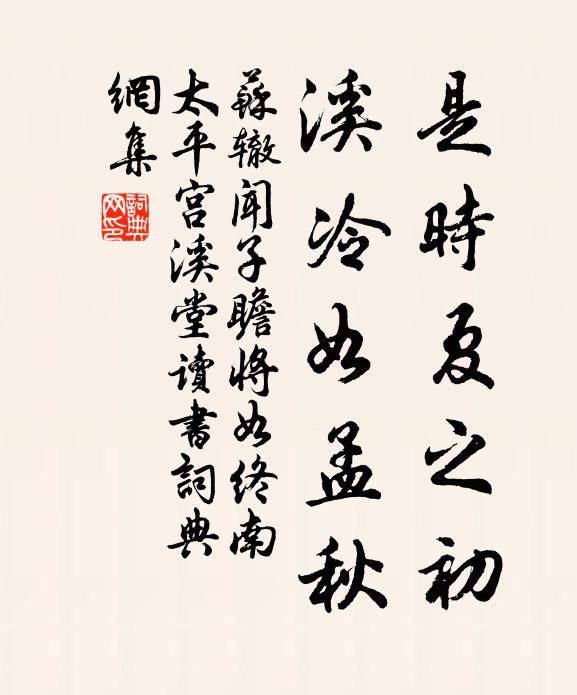 是時夏之初
溪冷如孟秋
蘇辙聞子瞻將如終南
太平宮溪堂讀書詞典
網集
詞典網印